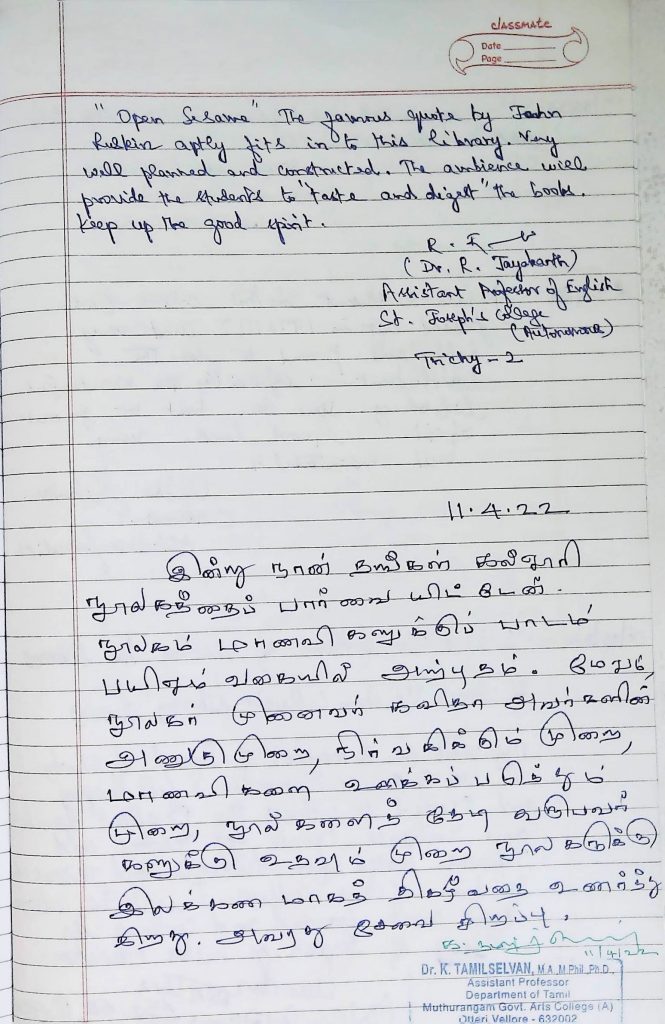 classmate
Date
Page
"Open Sesame" The famous quote by John
Ruskin aptly fits in to this library. Very
well planned and constructed. The ambience will
provide the students to "taste and digest" the books.
Keep up the good spirit.
(Dr. R. Jayakanth)
Assistant Professor of English
St. Joseph's College
(Autonomous)
Trichy - 2
11.4.22
இன்று நான் தங்கள் கல்லூரி
நூலகத்தைப் பார்வையிட்டேன்.
நூலகம் மாணவிகளுக்குப் பாடம்
பயிலும் வகையில் அற்புதம். மேலும்,
நூலகர் முனைவர் கவிதா அவர்களின்
அணுகுமுறை, நிர்வகிக்கும் முறை,
மாணவிகளை ஊக்கப்படுத்தும்
முறை, நூல்களைத் தேடி வருபவர்
களுக்கு உதவும் முறை நூலகருக்கு
இலக்கணமாகத் திகழ்வதை உணர்த்து
கிறது. அவரது சேவை சிறப்பு.
11/4/22
Dr. K. TAMILSELVAN, M.A.,M.Phil.,Ph.D.,
Assistant Professor
Department of Tamil
Muthurangam Govt. Arts College (A)
Otteri Vellore - 632002